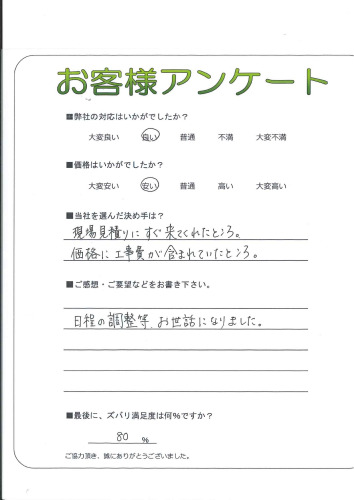 お客様アンケート
■弊社の対応はいかがでしたか？
大変良い 良い 普通 不満 大変不満
■価格はいかがでしたか？
大変安い 安い 普通 高い 大変高い
■当社を選んだ決め手は？
現場見積りにすぐ来てくれたところ。
価格に工事費が含まれていたところ。
■ご感想・ご要望などをお書き下さい。
日程の調整等、お世話になりました。
■最後に、ズバリ満足度は何%ですか？
80 %
ご協力頂き、誠にありがとうございました。